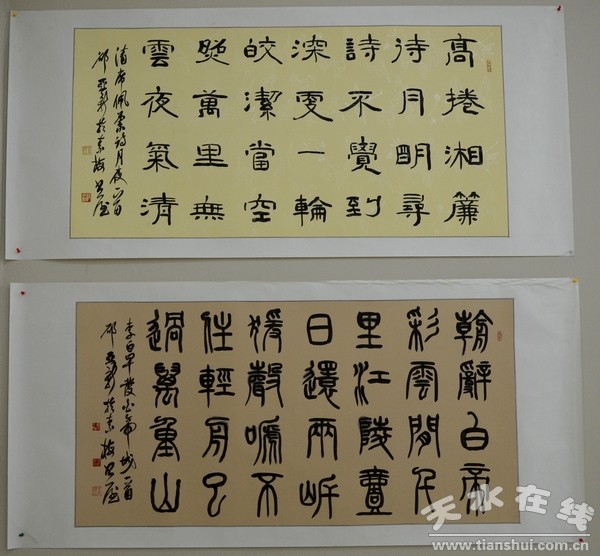 高捲湘簾
待月明尋
詩不覺到
深更一輪
皎潔當空
照萬里無
雲夜氣清
清席佩蘭詩月夜一首
於素梅書屋
朝辭白帝
彩雲間千
里江陵壹
日還兩岸
猿聲啼不
住輕舟已
過萬重山
李白早發白帝城一首
於素梅書屋
天水在线
www.tianshui.com.cn